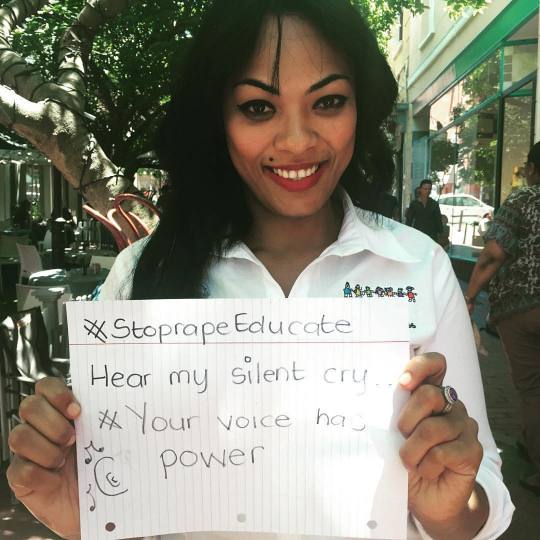 #StoprapeEducate
Hear my silent cry...
#Your voice has
power